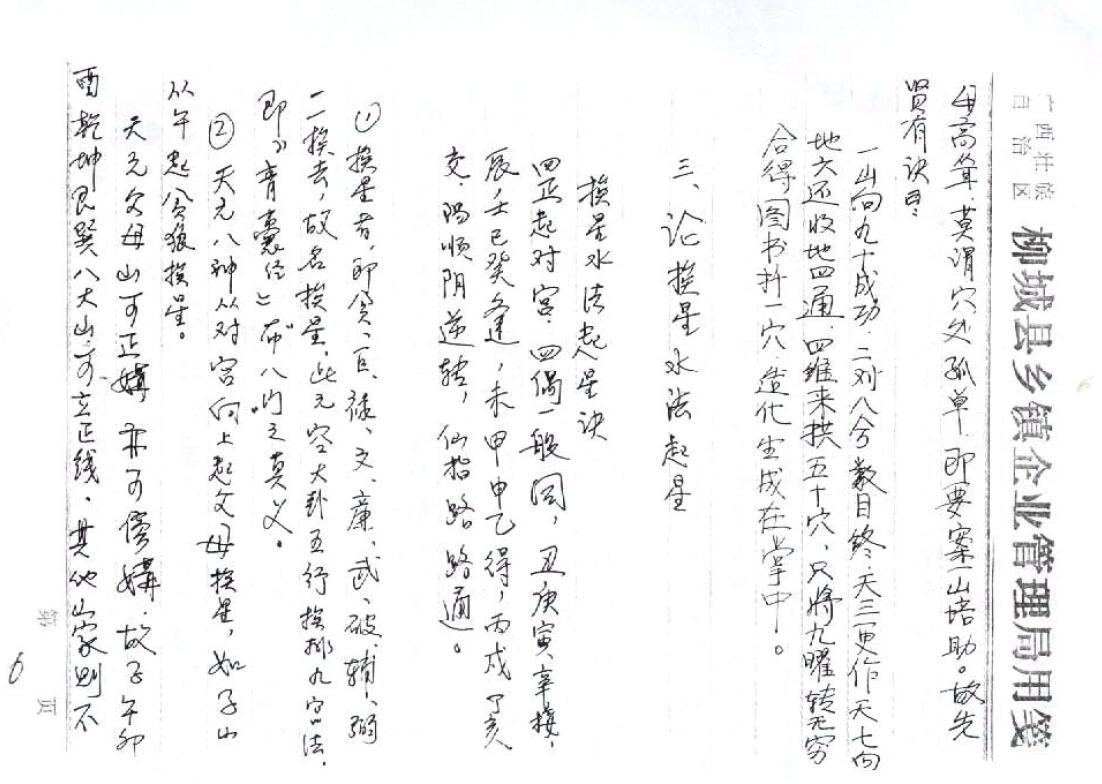 广西壮族
自治区
柳城县乡镇企业管理局用笺
母高耸，莫谓穴处孤单，即要案山培助。故先
贤有诀曰：
一山向九十成功，二对八兮数目终，天三更作天七向
地六还收地四通，四维来拱五十穴，只将九曜转无穷
合得图书扦一穴，造化生成在掌中。
三、论挨星水法起星
挨星水法起星诀
四正起对宫，四偶一般同，丑庚寅辛接，
辰壬巳癸逢，未甲申乙得，丙戌丁亥
交，阳顺阴逆转，仙指路路通。
① 挨星者，即贪、巨、禄、文、廉、武、破、辅、弼
一一挨去，故名挨星，此元空大卦五行挨排九宫法，
即《青囊经》"布八门"之真义。
② 天元八神从对宫向上起父母挨星，如子山
从午起贪狼挨星。
天元父母山可正媾亦可傍媾，故子午卯
酉乾坤艮巽八大山，可立正线，其他山家则不
第 页
6